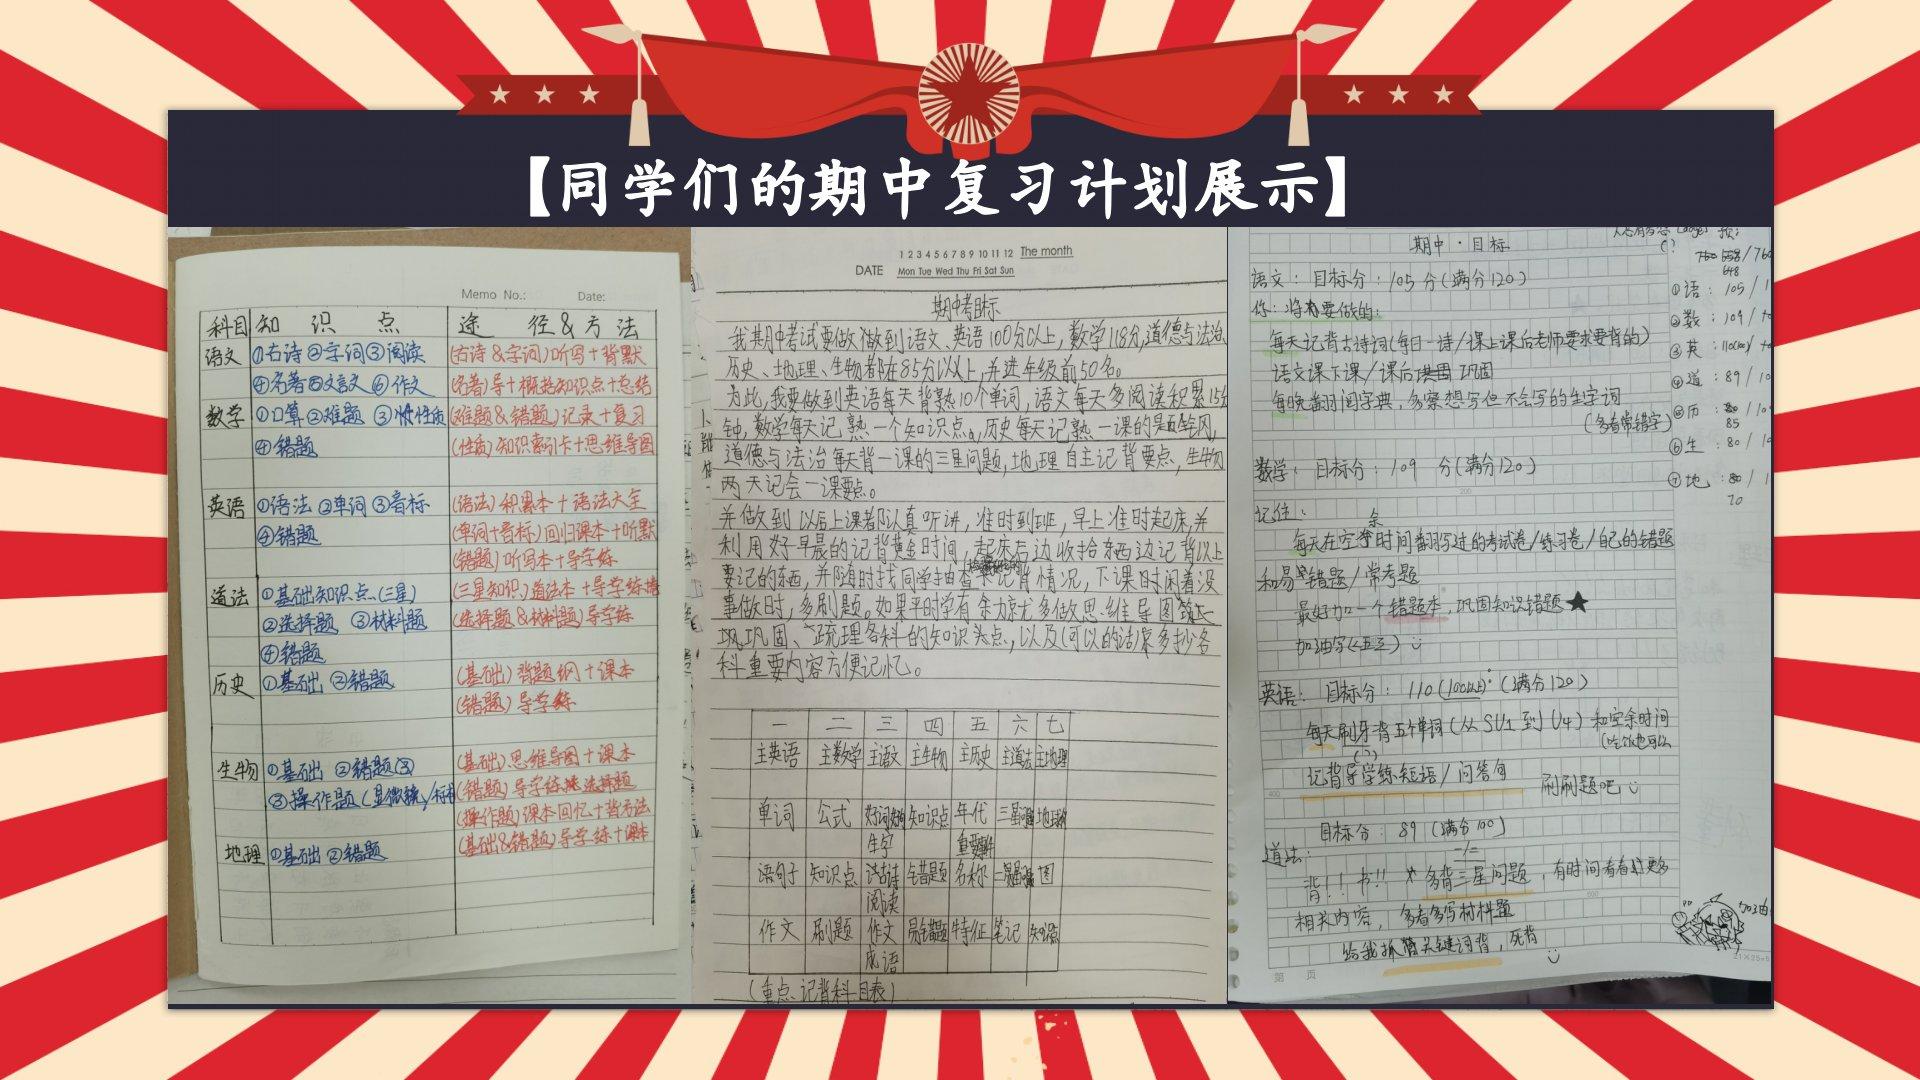 【同学们的期中复习计划展示】
Memo No.: Date:
科目 知 识 点 途 径&方 法
语文 ①古诗②字词③阅读 (古诗&字词)听写+背默
④名著⑤文言文⑥作文 (名著)导+概括知识点+总结
数学 ①口算②难题 ③性质 (难题&错题)记录+复习
④错题 (性质)知识索引卡+思维导图
英语 ①语法②单词③音标 (语法)积累本+语法大全
④错题 (单词+音标)回归课本+听默
(错题)听写本+导学练
道法 ①基础知识点(三星) (三星知识)道法本+导学练
②选择题 ③材料题 (选择题&材料题)导学练
④错题
历史 ①基础 ②错题 (基础)背题纲+课本
(错题)导学练
生物 ①基础 ②错题 (基础)思维导图+课本
③操作题(显微镜 (错题)导学练 选择题
(操作题)课本回忆+背方法
地理 ①基础②错题 (基础&错题)导学练+课本
1 2 3 4 5 6 7 8 9 10 11 12 The month
DATE Mon Tue Wed Thu Fri Sat Sun
期中考目标
我期中考试要做做到语文、英语100分以上,数学118分,道德与法治、
历史、地理、生物都在85分以上,并进年级前50名。
为此,我要做到英语每天背熟10个单词,语文每天多阅读积累15分
钟,数学每天记熟一个知识点,历史每天记熟一课的提纲,
道德与法治每天背一课的三星问题,地理自主记背要点,生物
两天记会一课要点。
并做到以后上课都认真听讲,准时到班,早上准时起床,并
利用好早晨的记背黄金时间,起床后边收拾东西边记背以上
要记的东西,并随时找同学抽查记背情况,下课时闲着没
事做时,多刷题。如果平时学有余力就多做思维导图
巩固、梳理各科的知识点,以及(可以的话)多抄各
科重要内容方便记忆。
一 二 三 四 五 六 七
主英语 主数学 主语文 主生物 主历史 主道法 主地理
单词 公式 好词好句 知识点 年代 三星问题
生字 重要事件
语句子 知识点 古诗 错题 名称 图
阅读
作文 刷题 作文 易错题 特征 笔记 知识点
成语
(重点记背科目表)
期中·目标
语文: 目标分: 105分(满分120)
你:将要做的:
每天记背古诗词(每日一诗/课上课后老师要求要背的)
语文课下课/课后 巩固
每晚翻阅字典,多察想写但不会写的生字词
(多看常错字)
数学: 目标分: 109 分(满分120)
200
记住:
每天在空余时间翻写过的考试卷/练习卷/自己的错题
和易错题/常考题
最好加一个错题本,巩固知识错题★
英语: 目标分: 110(100以上)(满分120)
每天刷牙背五个单词(从S1U1到U4)和空余时间
400
记背导学练短语/问答句 刷刷题吧
目标分: 89(满分100)
道法:
背!!书!! 多背三星问题,有时间看看更多
600
相关内容,多看多写材料题
给我抓着关键词背,死背
第 页
①语: 105/1
②数: 109/
③英: 110
④道: 89/10
⑤历: 80/10
85
⑥生: 80/10
⑦地: 80/1
70